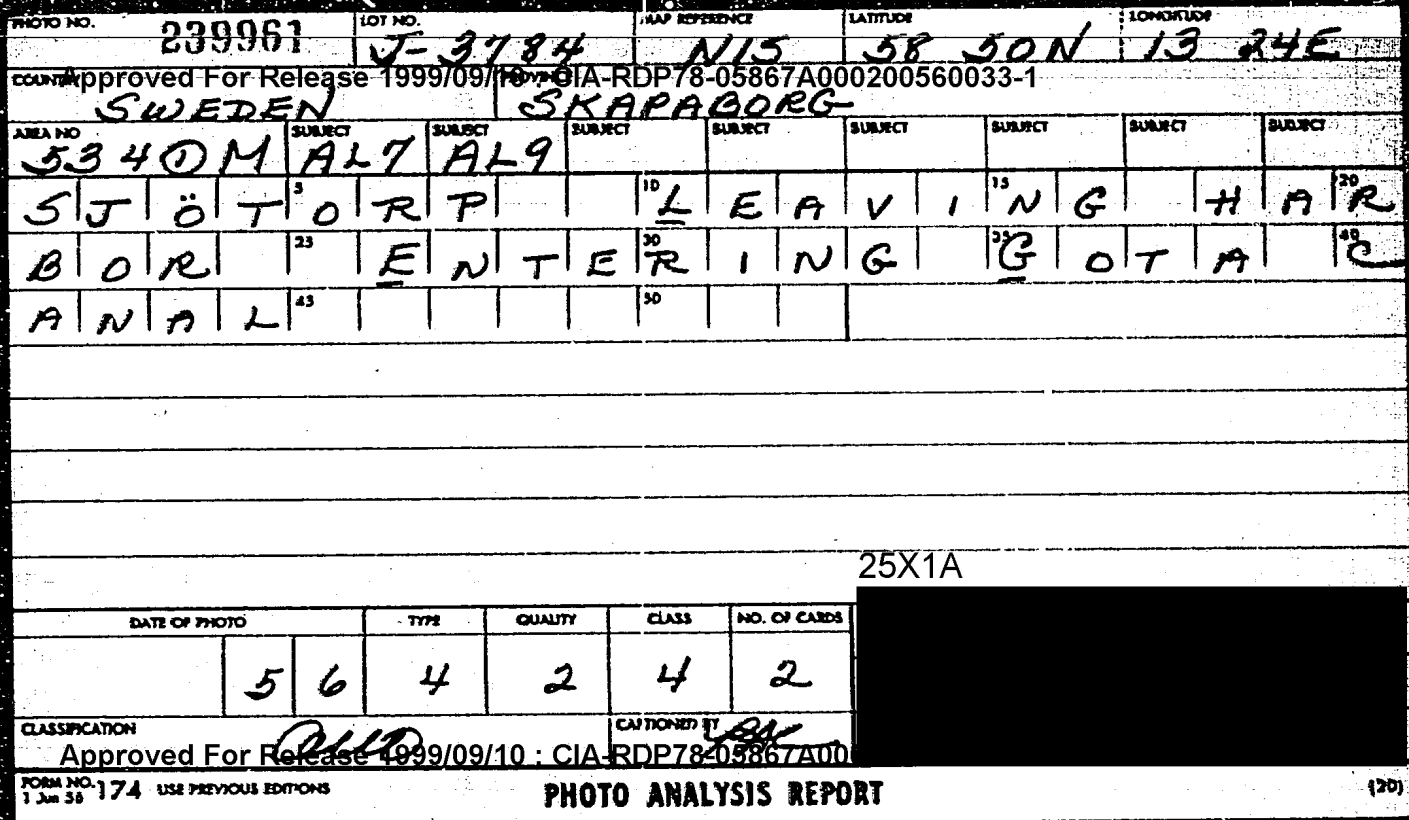 PHOTO NO. 239961 LOT NO. J-3784 MAP REFERENCE N15 LATITUDE 58 50N LONGITUDE 13 24E
Approved For Release 1999/09/10 : CIA-RDP78-05867A000200560033-1
COUNTRY SWEDEN PROVINCE SKAPABORG
AREA NO 534①M SUBJECT AL7 SUBJECT AL9 SUBJECT SUBJECT SUBJECT SUBJECT SUBJECT SUBJECT
SJÖT 5 ORP 10 LEAVI 15 NG HA 20 R
BOR 25 ENTE 30 RING 35 GOTA 40 C
ANAL 45 50
25X1A
DATE OF PHOTO TYPE QUALITY CLASS NO. OF CARDS
56 4 2 4 2
CLASSIFICATION CAPTIONED BY
Approved For Release 1999/09/10 : CIA-RDP78-05867A00
FORM NO. 174 USE PREVIOUS EDITIONS PHOTO ANALYSIS REPORT (20)
1 Jun 56